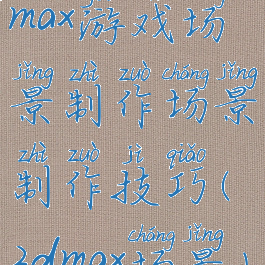 max游戏场
jǐng zhì zuò chǎng jǐng
景制作场景
zhì zuò jì qiǎo
制作技巧(
chǎng jǐng
3dmax场景)